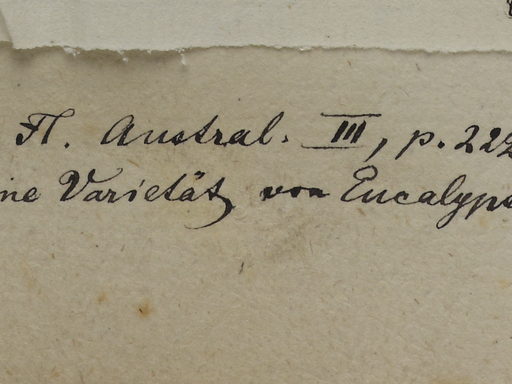 Fl. Austral. III, p. 222
ne Varietät von Eucalyp